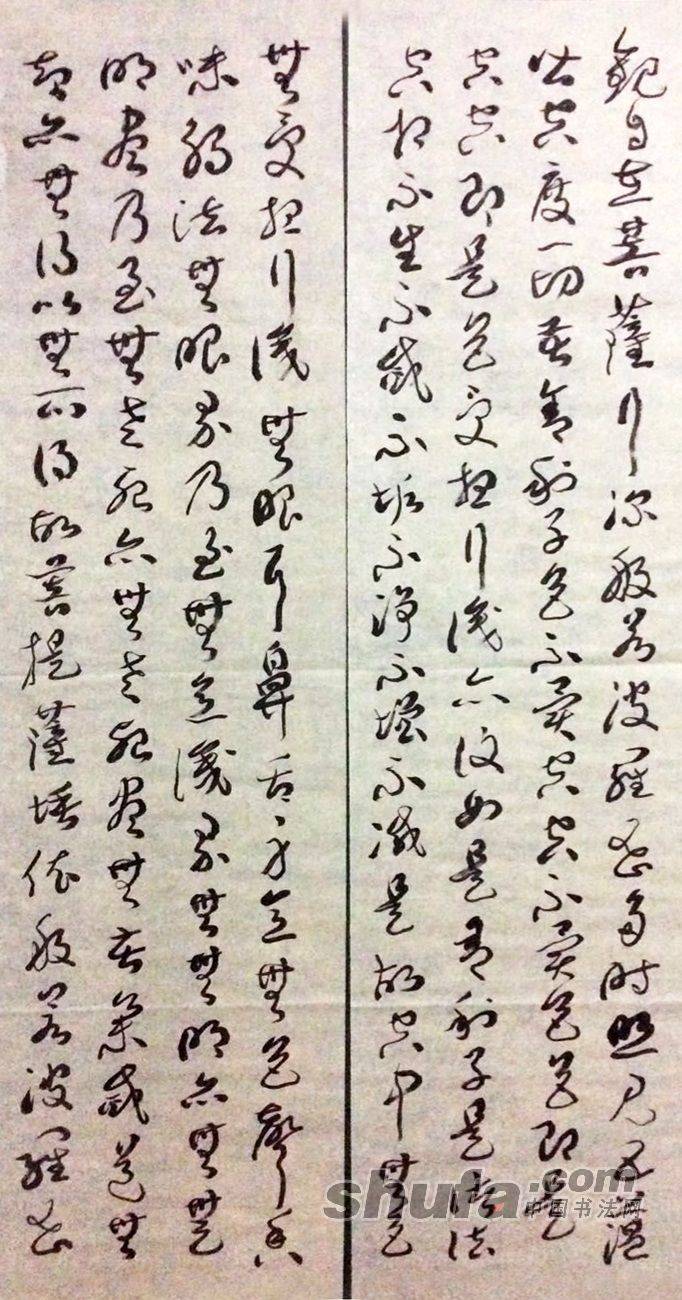 觀自在菩薩行深般若波羅蜜多時照見五蘊
皆空度一切苦舍利子色不異空空不異色色即是
空空即是色受想行識亦復如是舍利子是諸法
空相不生不滅不垢不淨不增不減是故空中無色
無受想行識無眼耳鼻舌身意無色聲香
味觸法無眼界乃至無意識界無無明亦無無
明盡乃至無老死亦無老死盡無苦集滅道無
智亦無得以無所得故菩提薩埵依般若波羅蜜
shufa.com
中国书法网